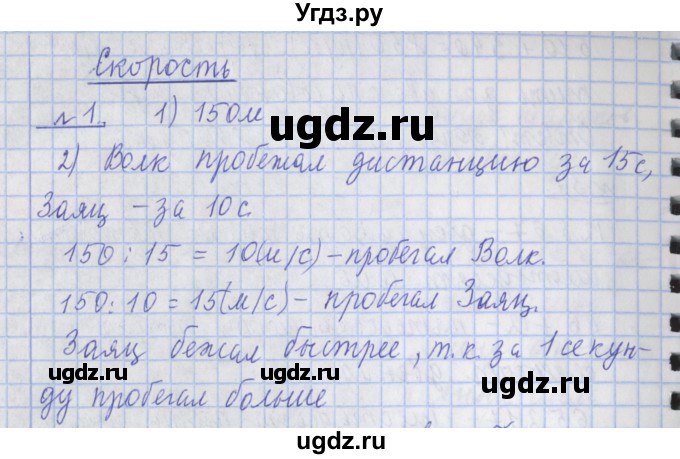 Угдз.ру
Скорость
№1. 1) 150м
ugdz.ru
2) Волк пробежал дистанцию за 15с,
Заяц – за 10с.
150 : 15 = 10(м/с) – пробегал Волк.
150 : 10 = 15(м/с) – пробегал Заяц.
Заяц бежал быстрее, т.к. за 1 секун-
ugdz.ru ugdz.ru
ду пробегал больше
ugdz.ru